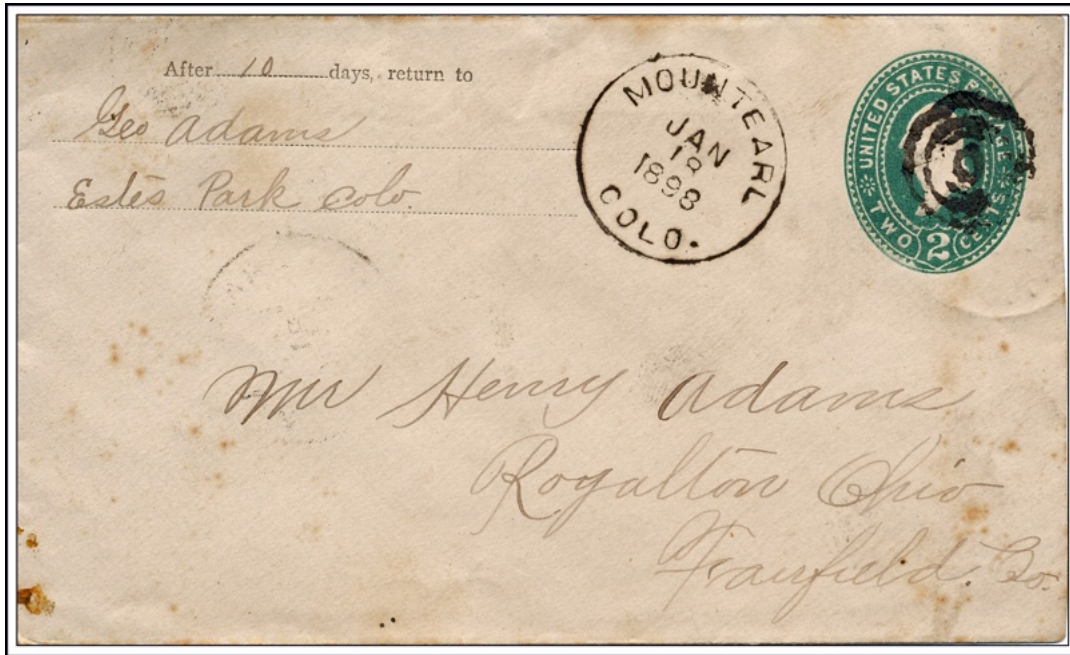 After 10 days, return to
Geo Adams
Estes Park Colo.
MOUNTEARL
JAN
18
1898
COLO.
UNITED STATES POSTAGE
TWO 2 CENTS
Mr Henry Adams
Royalton Ohio
Fairfield. Co.